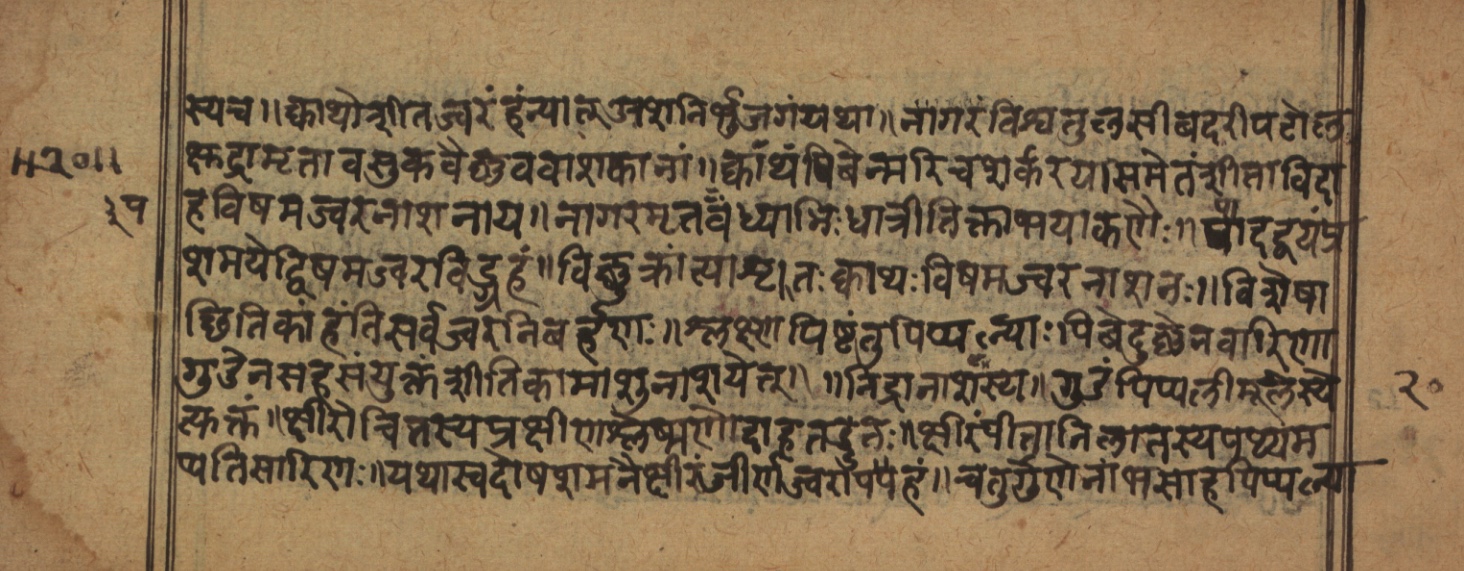 स्य च ॥ क्वाथो शीतज्वरं हंन्यात् अशनिर्भुजगं यथा ॥ नागरं विश्व तुलसी बदरी पटोल
कृष्णद्रामृता वसुकवैष्णववाशकानां ॥ क्वाथं पिबेन्मरिचशर्करया समेतं शीता विदा
॥२०॥
३५
हविषमज्वरनाशनाय ॥ नागरमृतवंध्याभिः धात्रीतिक्ताभयाकणैः ॥ पादद्वयं प्र
शमयेद्विषमज्वरविड्ग्रहं ॥ विष्णुक्रांत्याशृतः क्वाथः विषमज्वरनाशनः ॥ विशेषा
च्छितिकां हंति सर्वज्वरनिबर्हणः ॥ श्लक्ष्णपिष्टं तु पिप्पल्याः पिबेदुष्णेन वारिणा
गुडेन सह संयुक्तं शीतिकामाशु नाशयेत् ॥ ॥ निद्रानाशस्य ॥ गुडं पिप्पलीमूलस्य
२०
त्यक्तं ॥ क्षीरोचितस्य प्रक्षीणश्लेष्मणो दाहतड्वतः ॥ क्षीरं पीतानिलार्तस्य पथ्यम
प्यतिसारिणः ॥ यथास्वदोषशमनै क्षीरं जीर्णज्वरापहं ॥ चतुर्गुणेनांभसा ह पिप्पल्या